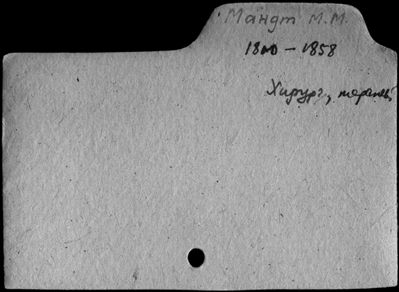 Мандт М.М.
1800 – 1858
Хирург, терапевт